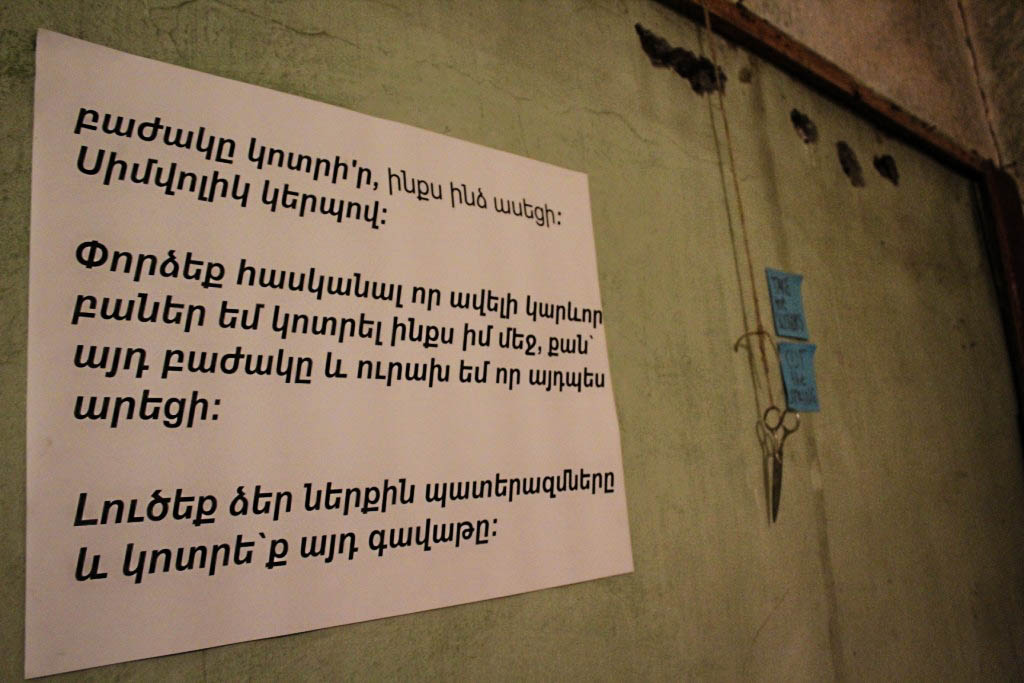 բաժակը կոտրի'ր, ինքս ինձ ասեցի:
Սիմվոլիկ կերպով:
Փորձեք հասկանալ որ ավելի կարևոր
բաներ եմ կոտրել ինքս իմ մեջ, քան`
այդ բաժակը և ուրախ եմ որ այդպես
արեցի:
Լուծեք ձեր ներքին պատերազմները
և կոտրե`ք այդ գավաթը:
TAKE
the
CUT
the